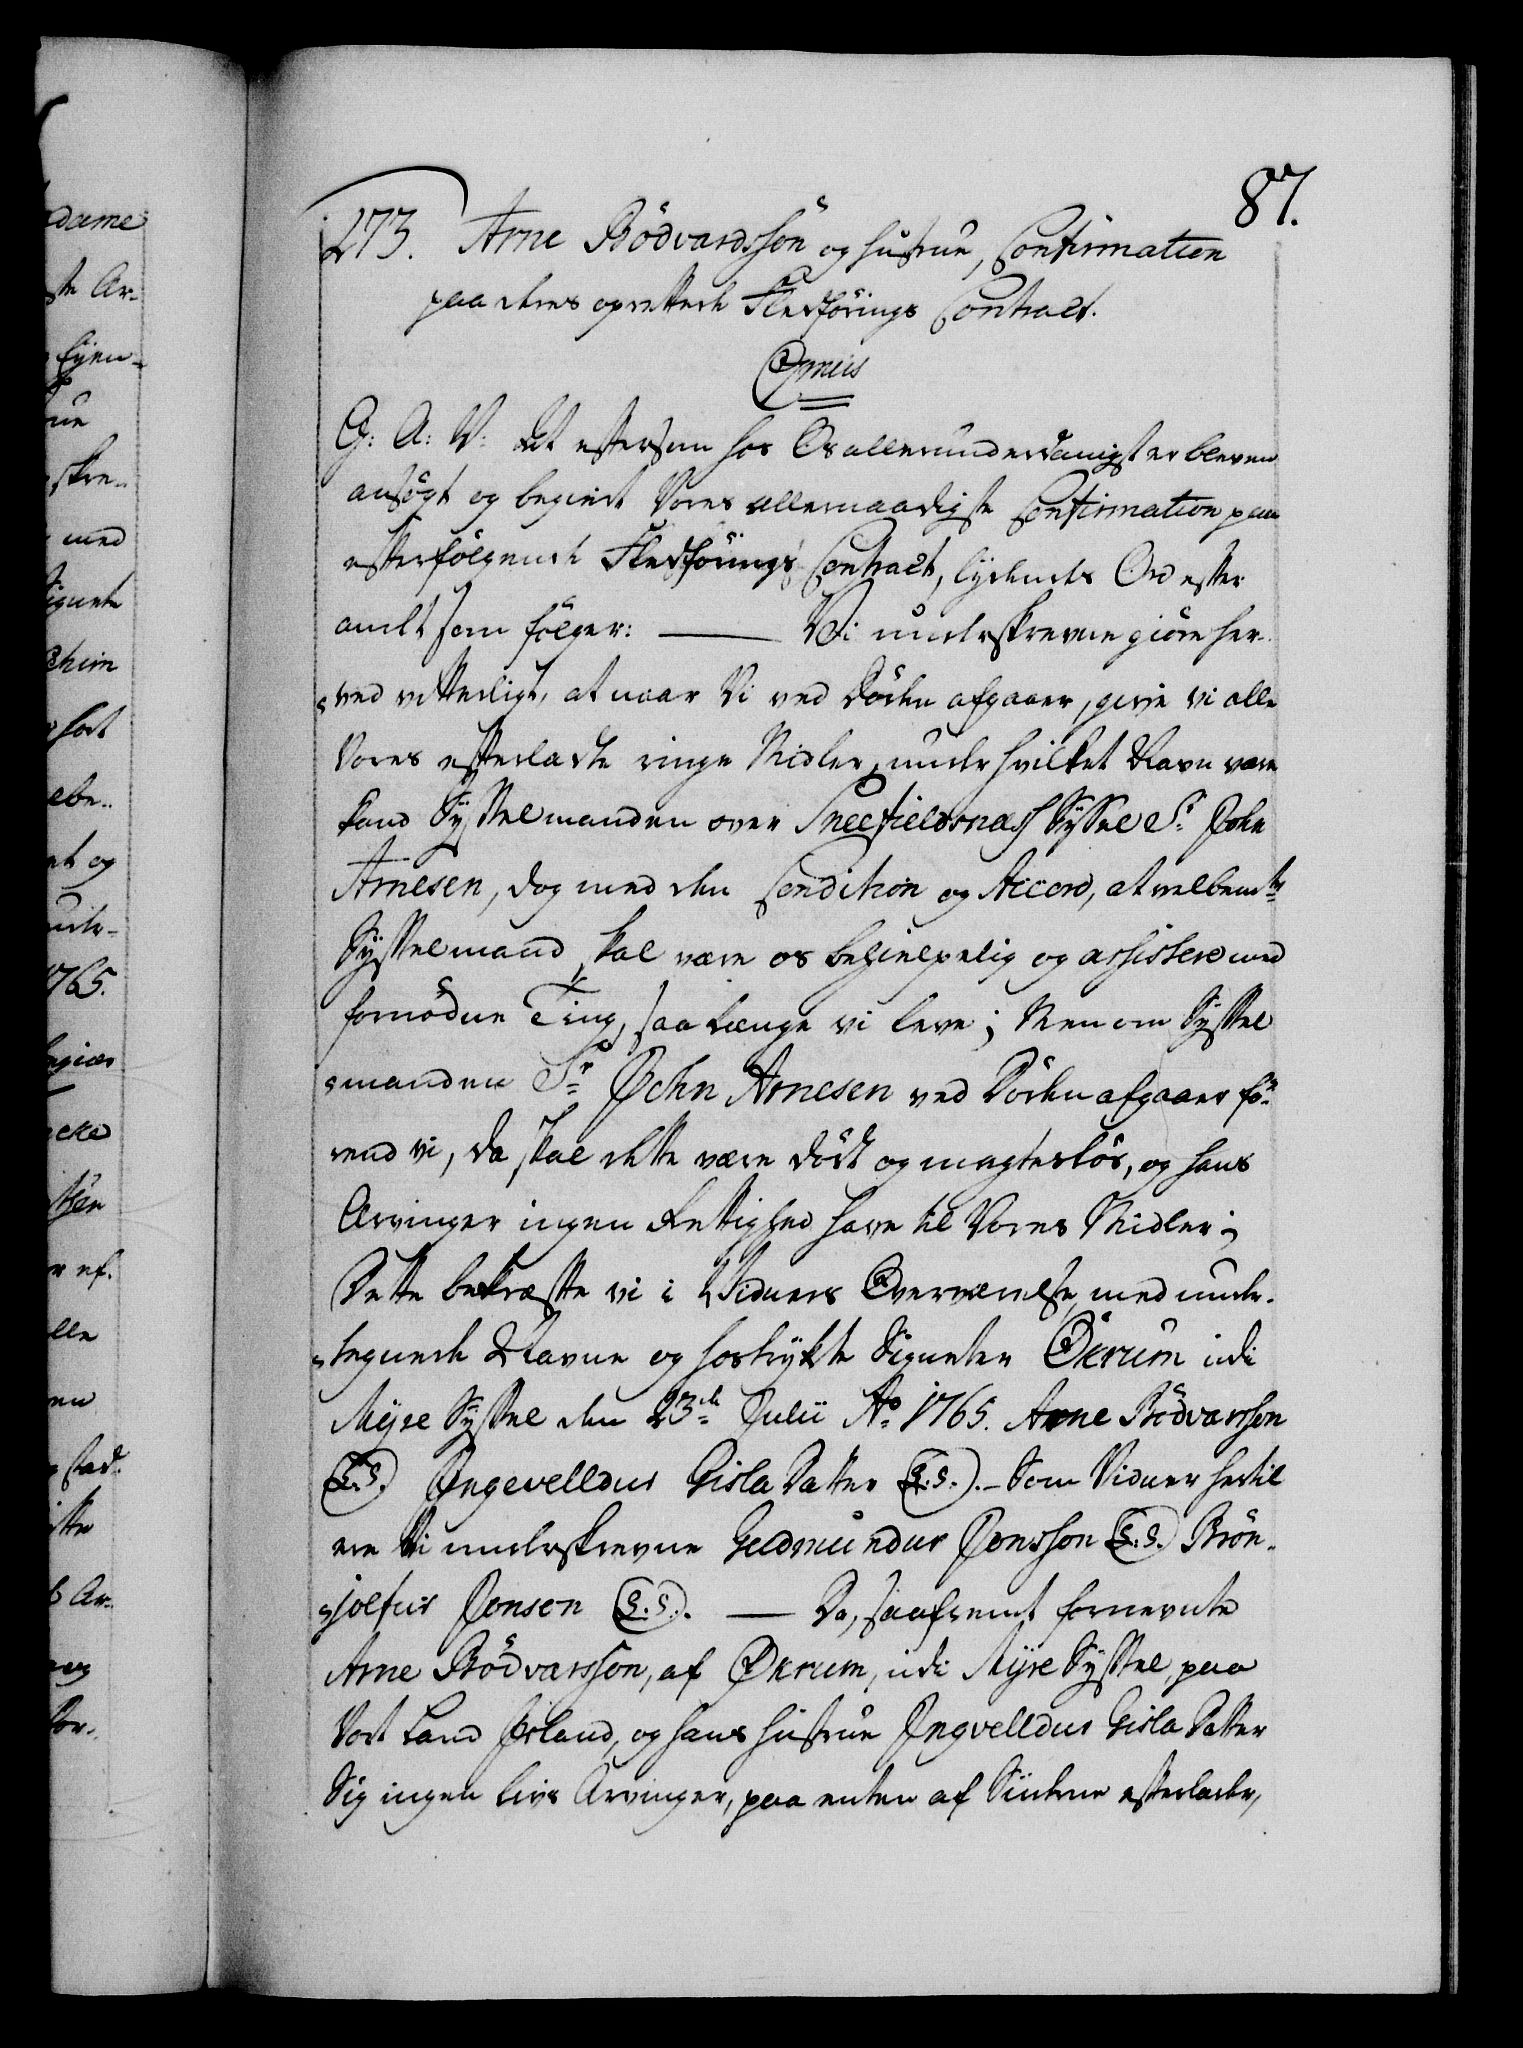 87.
273. Arne BödvardsSön og hustrue, Confirmation
paa deres oprettede Fledförings Contract.
G: A: V: at eftersom hos Os allerunderdanigst er bleven
ansögt og begiert Vores allernaadigste Confirmation paa
efterfölgende Fledförings Contract, lydendes Ord efter
andet som fölger: — Vi underskrevne giöre her-
ved vitterligt, at naar Vi ved Döden afgaaer, give vi alle
Vores efterladte ringe Midler, under hvilket Navn være
kand Sysselmanden over Sneefieldsnæss Syssel Sr. John
Arnesen, dog med den Condition og Accord, at velbemte
Sysselmand skal være os behielpelig og assistere med
fornödne Ting, saa længe vi leve; Men om Syssel
manden Sr. John Arnesen ved Döden afgaaer fö-
rend vi, da skal dette være dödt og magteslös, og hans
Arvinger ingen Rettighed have til Vores Midler;
Dette bekræfte vi i Vidners Overværelse, med under-
tegnede Navne og hostrykte Signeter Økrum udi
Myre Syssel den 23de Julii Ao. 1765. Arne Bödvarsson
(L.S.) Ingevelldur Gisla Datter (L.S.). – Som Vidner hertil
ere Vi underskrevne Gudmundur Jonsson (L.S.) Brön-
jolfur Jonsen (L.S.). — Da, saafremt fornevnte
Arne Bödvarsson, af Økrum, udi Myre Syssel paa
Vort Land Jisland, og hans hustrue Ingvelldur Gisla Datter
Sig ingen livs Arvinger, paa enten af Siderne efterlader,